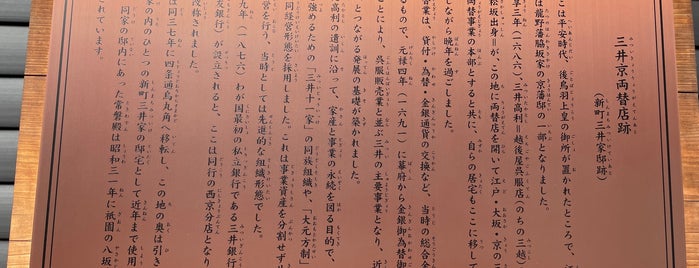 三井京両替店跡
（新町三井家邸跡）
ここは平安時代、後鳥羽上皇の御所が置かれたところで、
は龍野藩脇坂家の京藩邸の一部となりました。
享三年（一六八六）、三井高利＝越後屋呉服店（のちの三越）
松坂出身＝が、この地に両替店を開いて江戸・大坂・京の三
両替事業の本部とすると共に、自らの居宅もここに移して
しながら晩年を過ごしました。
替業は、貸付・為替・金銀通貨の交換など、当時の総合金
るもので、元禄四年（一六九一）に幕府から金銀御為替御
ことにより、呉服販売業と並ぶ三井の主要事業となり、近
とつながる発展の基礎が築かれました。
高利の遺訓に沿って、家産と事業の永続を図る目的で、
強めるための「三井十一家」の同族組織や、「大元方制」
同経営形態を採用しました。これは事業資産を分割せず
営を行う、当時としては先進的な組織形態でした。
九年（一八七六）わが国最初の私立銀行である三井銀行
友銀行）が設立されると、ここは同行の西京分店となり
改称されました。
は同三七年に四条通烏丸角へ移転し、この地の奥は引き
家の内のひとつの新町三井家の邸宅として近年まで使用
同家の邸内にあった常磐殿は昭和三一年に祇園の八坂
れています。